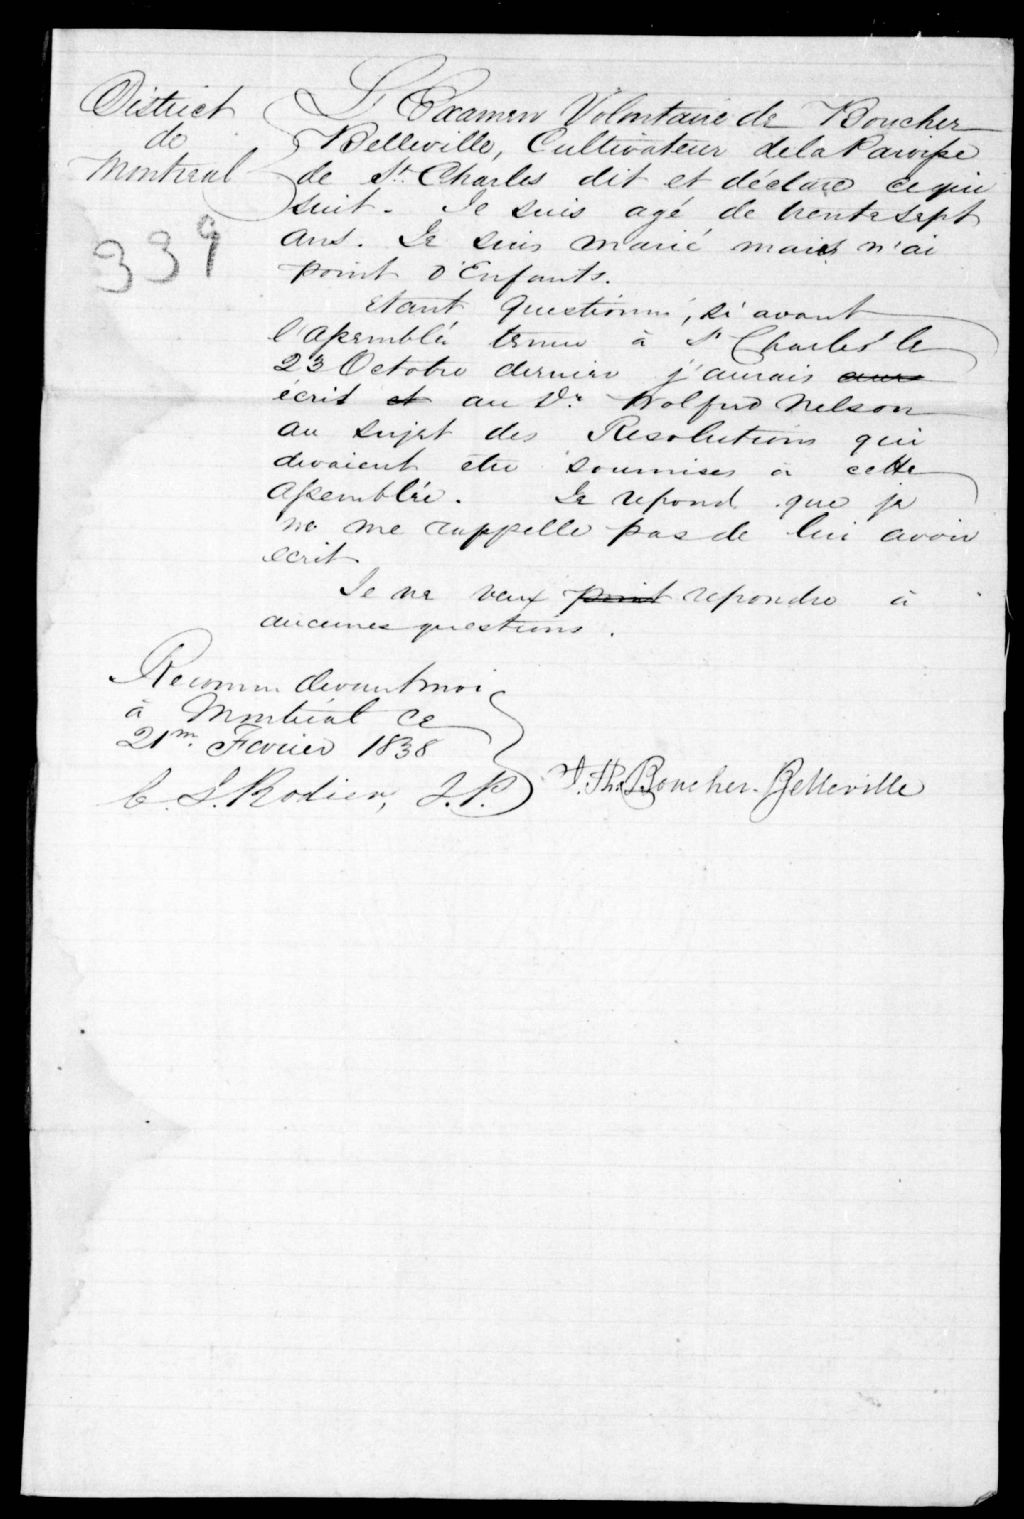 District
de
Montreal
339
L'Examen Volontaire de Boucher
Belleville, Cultivateur de la Paroisse
de St. Charles dit et déclare ce qui
suit. Je suis agé de trente sept
ans. Je suis marié mais n'ai
point d'Enfants.
Etant questionné, si avant
l'assemblée tenue à St Charles le
23 Octobre dernier j'aurais
écrit et au Dr. Wolfred Nelson
au sujet des Resolutions qui
devaient etre soumises à cette
assemblée. Je repond que je
ne me rappelle pas de lui avoir
ecrit
Je ne veux point repondre à
aucunes questions.
Reconnu devant moi
à Montréal ce
21m. Fevrier 1838
C. S. Rodier, J.P.
J. Ths Boucher-Belleville